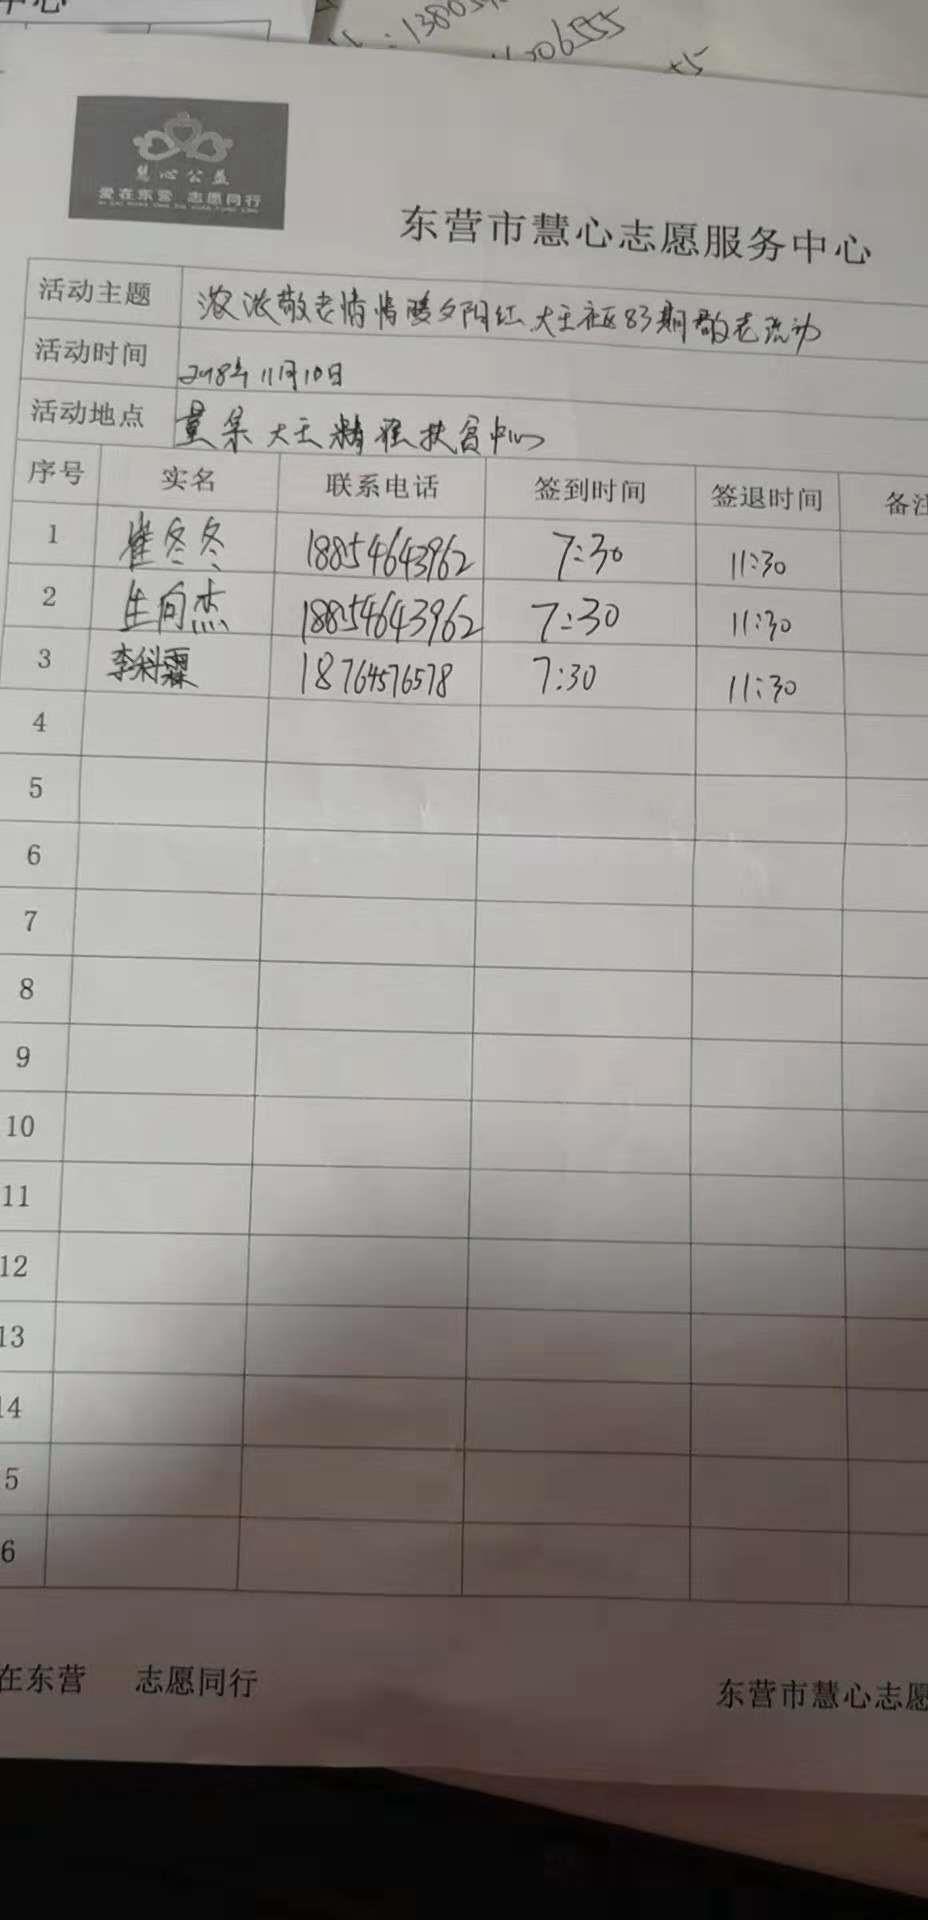 中心
:13805
06555
慧心公益
爱在东营 志愿同行
东营市慧心志愿服务中心
活动主题 浓浓敬老情 情暖夕阳红 大王社区83期敬老活动
活动时间 2018年11月10日
活动地点 大王精准扶贫中心
序号 实名 联系电话 签到时间 签退时间 备注
1 崔冬冬 18854643962 7:30 11:30
2 生向杰 18854643962 7:30 11:30
3 李科霖 18764576578 7:30 11:30
4
5
6
7
8
9
10
11
12
13
14
5
6
在东营 志愿同行 东营市慧心志愿